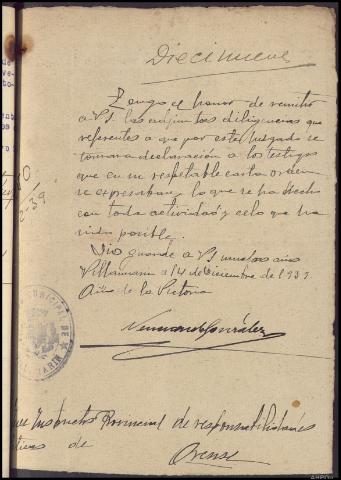 Diecinueve
Tengo el honor de remitir
a VS. las adjuntas diligencias que
referentes a que por este Juzgado se
tomara declaración a los testigos
que en su respetable carta orden
se expresaban, lo que se ha hecho
con toda actividad y celo que ha
sido posible.
Dios guarde a VS muchos años
Villamarin a 14 de Diciembre de 1939.
Año de la Victoria
González
Instructor Provincial de responsabilidades
de Orense